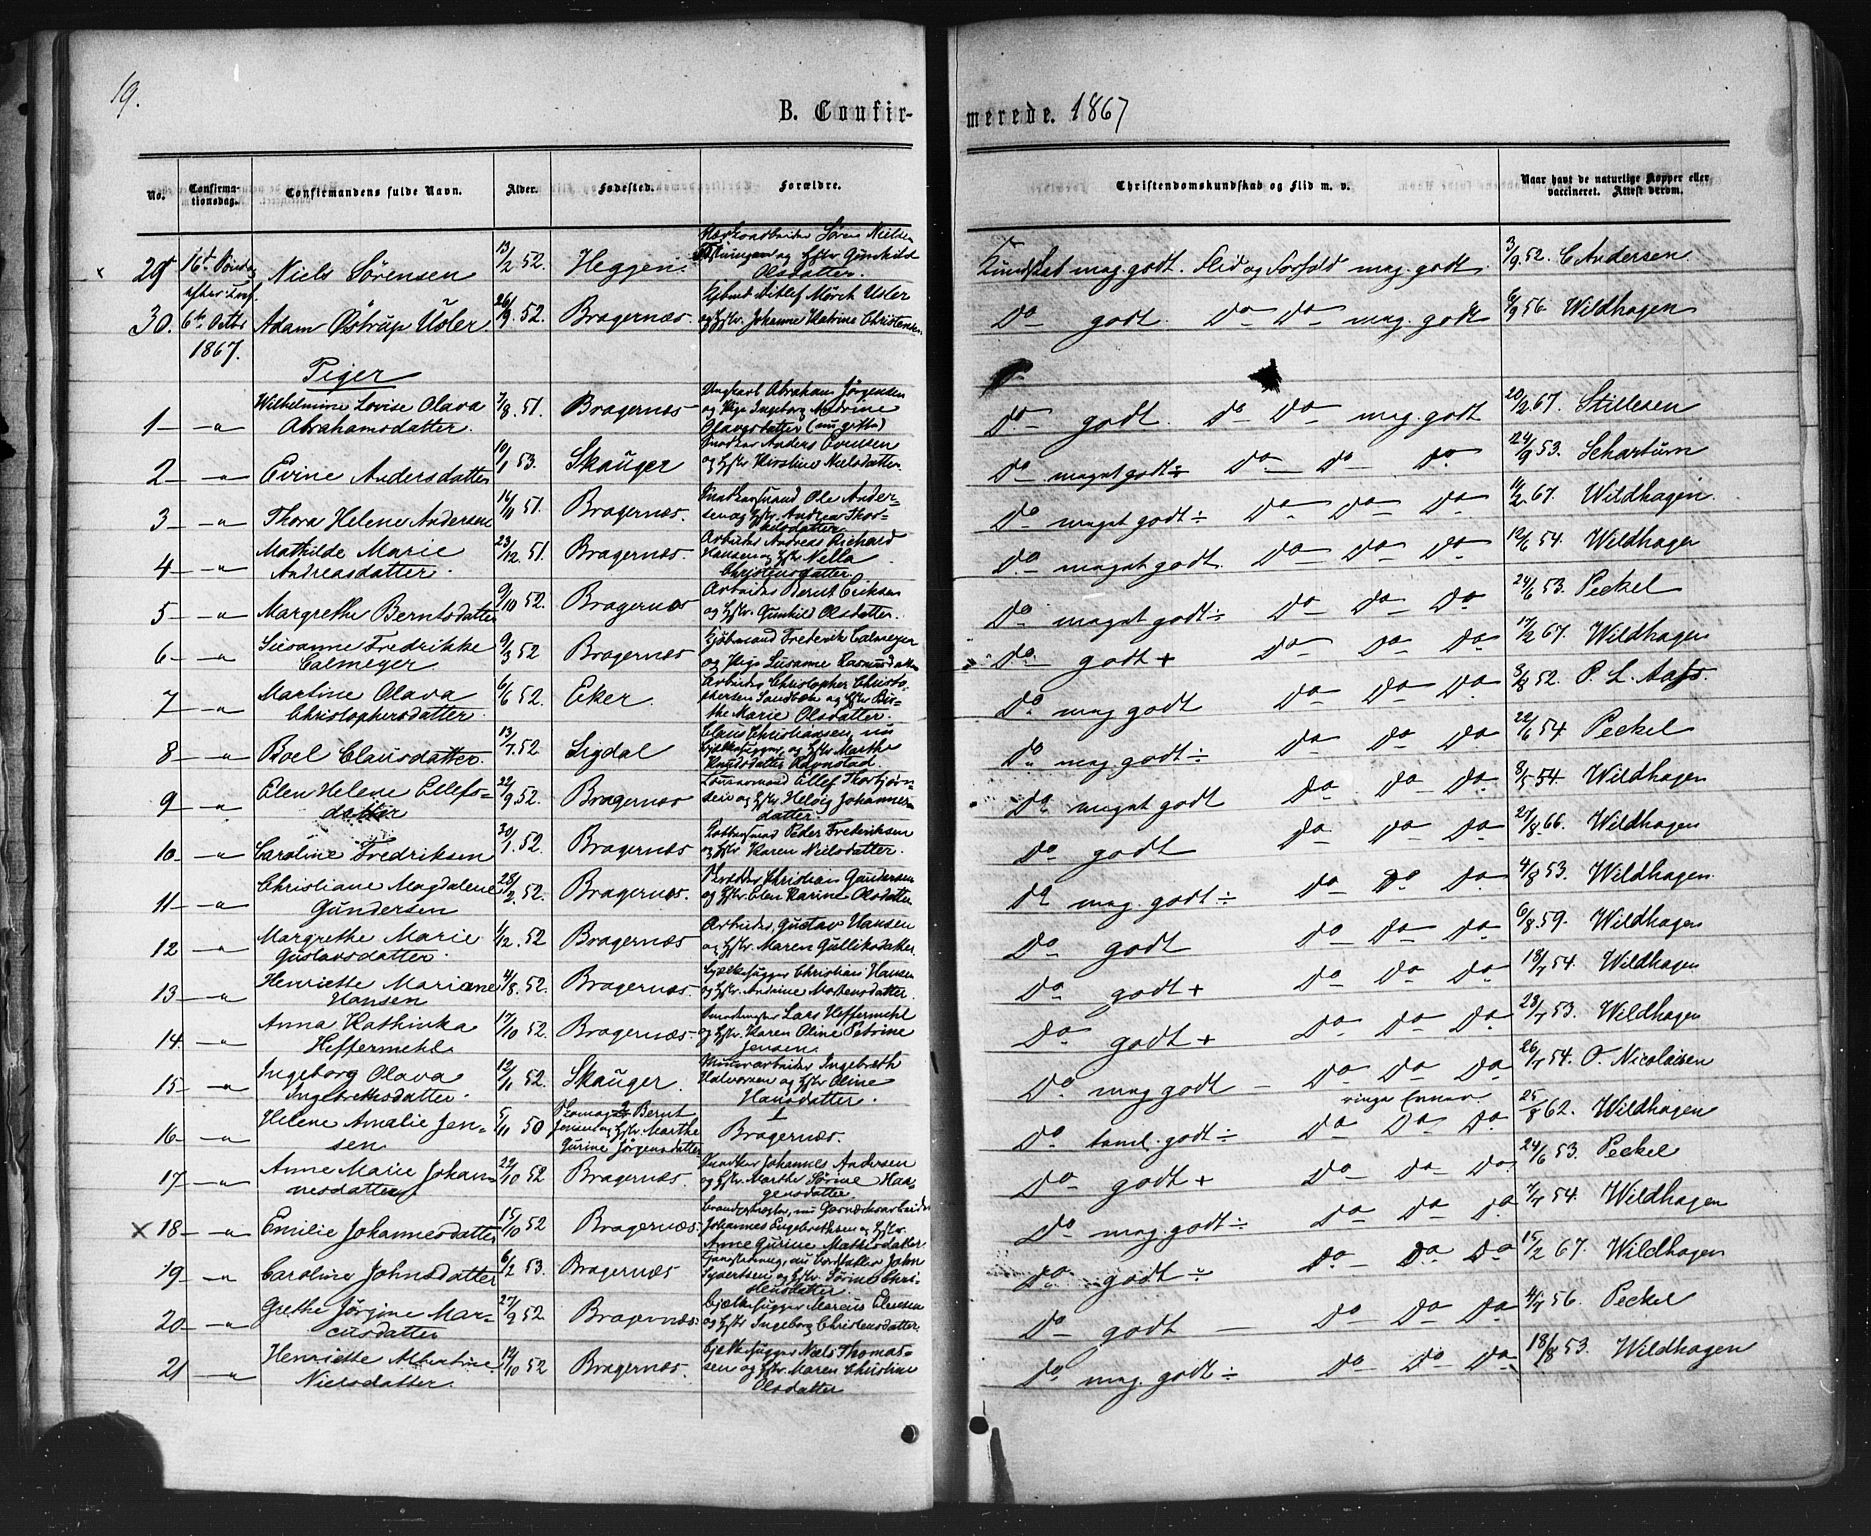 19.
B. Confir- merede. 1867
No. Confirma-tionsdag. Confirmandens fulde Navn. Alder. Fødested. Forældre. Christendomskundskab og Flid m. v. Naar havt de naturlige Kopper eller vaccineret. Attest derom.
29 16de Søndag Niels Sørensen 13/2 52. Heggen Søren Nielsen og Hstr. Gunhild Olsdatter. Kundskab mag. godt. Flid og Forhold mag. godt 3/9. 52. C Andersen
efter Tref.
30. 6te Octbr 1867. Adam Østrup Usler 26/9 52. Bragernæs Kjbmd Ditlef Mørch Usler og Hstr. Johanne Katrine Christensen Do godt. Do Do mag. godt 6/9 56 Wildhagen
Piger
1 — " Wilhelmine Lovise Olava Abrahamsdatter. 7/8. 51. Bragernæs Ungkarl Abraham Jørgensen og Pige Ingeborg Andrine Olavsdatter (nu gifte) Do godt. Do Do mag. godt 20/2 67. Stillesen
2 — " Evine Andersdatter 10/1 53. Skauger Anders Evensen og Hstr. Kirstine Nielsdatter. Do meget godt ÷ Do Do Do 24/9 53. Schartum
3 — " Thora Helene Andersen 16/11 51. Bragernæs. Ole Andersen og Hstr. Andrea Thorkelsdatter Do meget godt ÷ Do Do Do 14/2 67. Wildhagen.
4 — " Mathilde Marie Andreasdatter. 23/12. 51. Bragernæs Arbeider Andreas Richard Hansen og Hstr Nella Christensdatter. Do meget godt. Do Do Do 12/6 54. Wildhagen
5 — " Margrethe Berntsdatter 9/10 52. Bragernæs Arbeider Bernt Eriksen og Hstr. Gunhild Olsdatter. Do meget godt ÷ Do Do Do 24/6 53. Peckel
6 — " Susanne Fredrikke Calmeyer 9/3 52 Bragernæs Kjøbmand Frederik Calmeyer og Pige Susanne Rasmusdatter Do godt + Do Do Do 17/2 67. Wildhagen
7 — " Martine Olava Christophersdatter. 6/6 52. Eker. Arbeider Christopher Christophersen Sandbæk og Hstr Birthe Marie Olsdatter. Do mag godt Do Do Do 3/8 52. P. L. Aass.
8 — " Boel Clausdatter. 13/7. 52. Sigdal Claus Christiansen, nu Bjælkehugger, og Hstr. Marthe Knudsdatter Ravnstad. Do mag godt ÷ Do Do Do 22/6 54 Peckel
9 — " Elen Helene Ellefsdatter 22/9 52. Bragernæs Ellef Thorbjørnsen og Hstr. Helvig Johannesdatter. Do meget godt Do Do Do 3/5 54. Wildhagen
10 — " Caroline Fredriksen 30/1. 52. Bragernæs Peder Frederiksen og Hstr. Karen Nielsdatter. Do godt Do Do Do 27/8. 66. Wildhagen
11 — " Christiane Magdalene Gundersen 28/2. 52. Bragernæs. Christian Gundersen og Hstr. Elen Karine Olsdatter Do mag. godt ÷ Do Do Do 4/8 53. Wildhagen.
12 — " Margrethe Marie Gustavsdatter. 1/12. 52 Bragernæs Arbeider, Gustav Hansen og Hstr. Maren Gulliksdatter. Do godt Do Do Do 6/8. 59. Wildhagen
13 — " Henriette Mariane Hansen 4/8. 52. Bragernæs. Bjælkehugger Christian Hansen og Hstr. Andrine Mortensdatter. Do godt + Do Do Do 18/7 54. Wildhagen
14. — " Anna Kathinka Heffermehl 17/10 52. Bragernæs. Lars Heffermehl og Hstr. Karen Oline Petrine Jensen Do godt + Do Do Do 28/7 53. Wildhagen
15 — " Ingeborg Olava Ingebrethsdatter. 12/11 52. Skauger. Ingebreth Halvorsen og Hstr Oline Hansdatter. Do mag godt — Do Do Do 26/7 54. O. Nicolaisen
16 — " Helene Amalie Jensen 5/11 50 Skomag. Bernt Jensen og Hstr. Marthe Gurine Jørgensdatter 2 1 Bragernæs. Do taal. godt ÷ ringe Do Do Do 25/8 62. Wildhagen
17 — " Anne Marie Johannesdatter 22/10 52 Bragernæs. Johannes Andersen og Hstr. Marthe Sørine Haagensdatter Do godt + Do Do Do 24/6 53. Peckel
× 18 — " Emilie Johannesdatter 15/10 52 Bragernæs. Johannes Engebrethsen og Hstr. Anne Gurine Mathisdatter Do mag. godt ÷ Do Do Do 7/7 54. Wildhagen
19 — " Caroline Johnsdatter 6/2 53. Bragernæs John Syvertsen og Hstr. Sørine Christensdatter. Do godt ÷ Do Do Do 15/2 67. Wildhagen
20 — " Grethe Jørgine Marcusdatter 27/9 52 Bragernæs. Bjælkehugger Marcus Olsen og Hstr Ingeborg Christensdatter. Do godt — Do Do Do 4/7 56. Peckel
21 — " Henriette Albertine Nielsdatter. 14/10 52 Bragernæs. Bjælkehugger Niels Thomassen og Hstr. Maren Christine Olsdatter Do mag. godt ÷ Do Do Do 18/8 53. Wildhagen